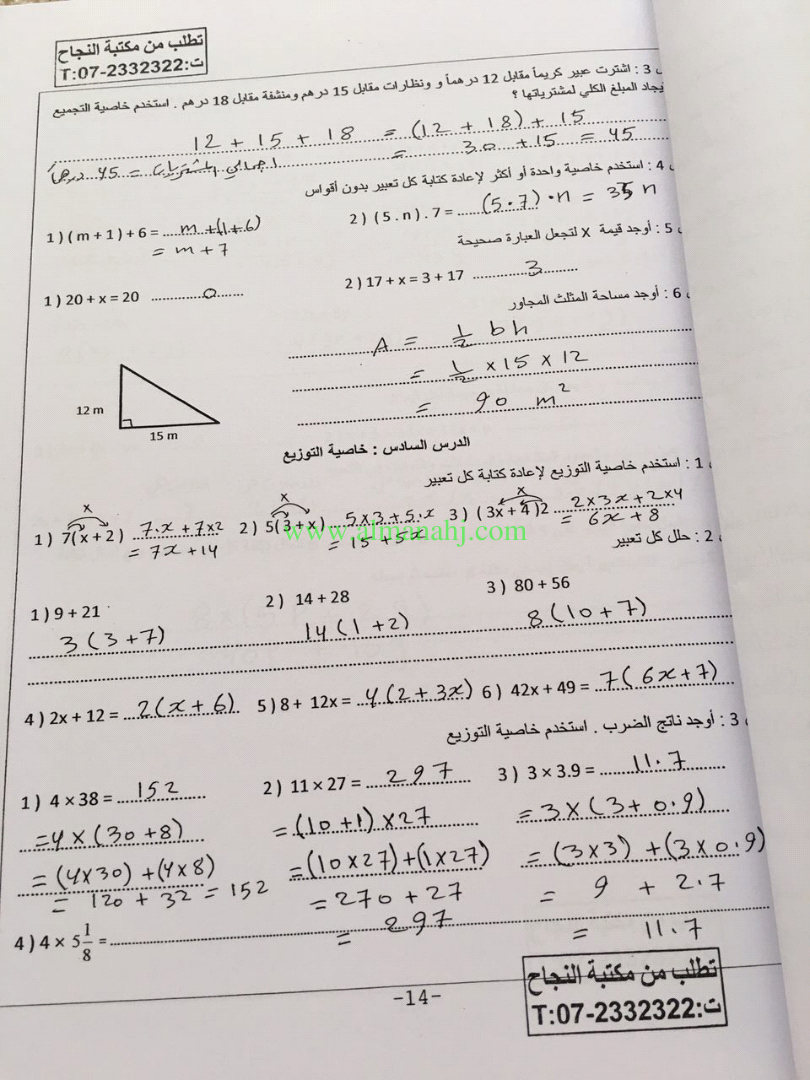 تطلب من مكتبة النجاح
ت:T:07-2332322
3 : اشترت عبير كريماً مقابل 12 درهماً و ونظارات مقابل 15 درهم ومنشفة مقابل 18 درهم . استخدم خاصية التجميع
يجاد المبلغ الكلي لمشترياتها ؟
12 + 15 + 18 = (12 + 18) + 15
= 30 + 15 = 45
اجمالي المشتريات = 45 درهماً
4 : استخدم خاصية واحدة أو أكثر لإعادة كتابة كل تعبير بدون أقواس
1 ) ( m + 1 ) + 6 = m + (1 + 6)
= m + 7
2 ) ( 5 . n ) . 7 = (5 . 7) . n = 35 n
5 : أوجد قيمة X لتجعل العبارة صحيحة
1 ) 20 + x = 20 0
2 ) 17 + x = 3 + 17 3
6 : أوجد مساحة المثلث المجاور
A = 1/2 b h
= 1/2 x 15 x 12
= 90 m²
12 m
15 m
الدرس السادس : خاصية التوزيع
1 : استخدم خاصية التوزيع لإعادة كتابة كل تعبير
x x x
1 ) 7(x + 2 ) 7.x + 7x2 2 ) 5(3 + x) 5x3 + 5.x 3 ) ( 3x + 4 )2 2x3x + 2x4
= 7x + 14 = 15 + 5x = 6x + 8
www.almanahj.com
2 : حلل كل تعبير
1 ) 9 + 21 2 ) 14 + 28 3 ) 80 + 56
3 (3 + 7) 14 (1 + 2) 8 (10 + 7)
4 ) 2x + 12 = 2(x + 6) 5 ) 8 + 12x = 4 (2 + 3x) 6 ) 42x + 49 = 7 (6x + 7)
3 : أوجد ناتج الضرب . استخدم خاصية التوزيع
1 ) 4 × 38 = 152 2 ) 11 × 27 = 297 3 ) 3 × 3.9 = 11.7
= 4 x (30 + 8) = (10 + 1) x 27 = 3 x (3 + 0.9)
= (4x30) + (4x8) = (10x27) + (1x27) = (3x3) + (3x0.9)
= 120 + 32 = 152 = 270 + 27 = 9 + 2.7
= 297 = 11.7
4 ) 4 × 5 1/8 =
-14-
تطلب من مكتبة النجاح
ت:T:07-2332322